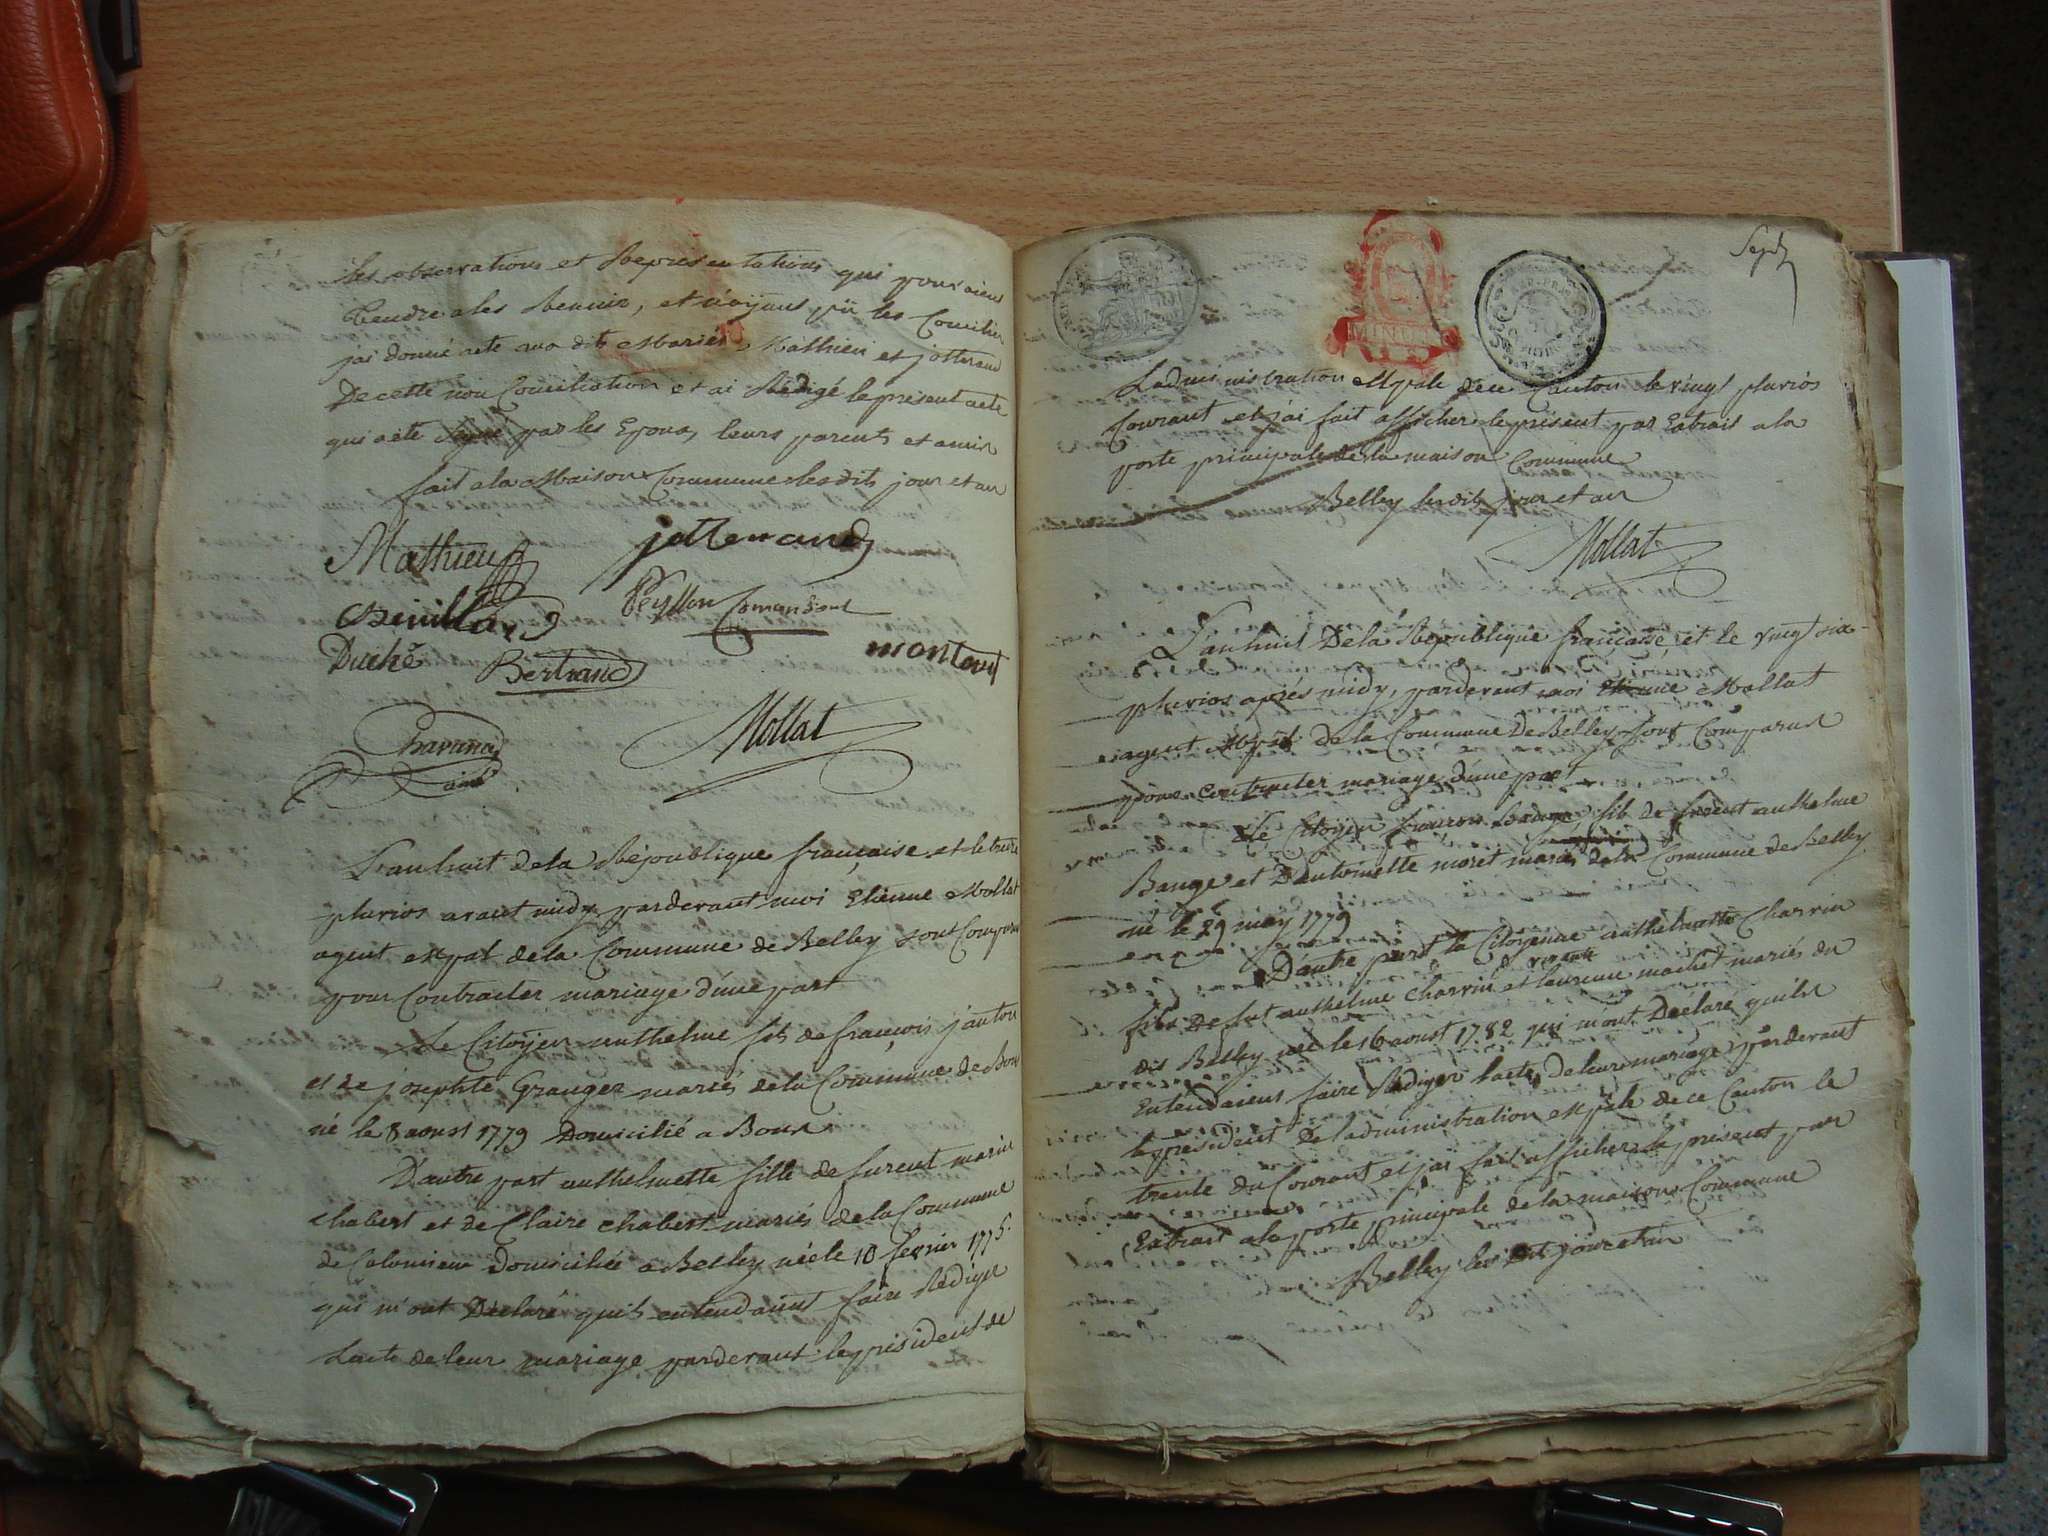 les observations et Representations qui pouvoient
tendre a les Reunir, et n'ayant pü les Concilier
j'ai donné acte aux dits Mariés Mathieu et jotterand
De cette non Conciliation et ai Rédigé le présent acte
qui a eté Signé par les Epoux, leurs parents et amis
fait a la Maison Commune lesdits jour et an
Mathieu jotterand
Peysson Comandant
Duché Bertrand montout
Mollat
L'an huit de la Republique française et le treize
pluvios avant midy pardevant moi Etienne Mollat
agent Mpal de la Commune de Belley sont Comparu
pour Contracter mariage d'une part
Le Citoyen anthelme fils de françois janton
et de josephte Granger mariés de la Commune de Bons
né le 8 aoust 1779 Domicilié a Bons
D'autre part anthelmette fille de furent marin
chabert et de Claire chabert mariés de la Commune
de Colomieu Domiciliée a Belley née le 10 fevrier 1775.
qui m'ont Déclaré quils entendaient faire Rédiger
Lacte de leur mariage pardevant le président de
Sept
Ladministration Mpale de ce Canton le vingt pluvios
Courant et j'ai fait afficher le présent par Extrait a la
porte principale de la maison Commune
Belley lesdits jour et an
Mollat
L'an huit De la Republique française et le vingt six
pluvios après midy, pardevant moi Etienne Mollat
agent Mpal de la Commune De Belley sont Comparu
pour contracter mariage d'une part
Le Citoyen françois fils de furent anthelme
Bauge et D'antoinette moret mariés de la Commune de Belley
né le 29 may 1779
D'autre part la Citoyenne anthelmette Charvin
vivante
fille De fut anthelme Charvin et laurence machet mariés du
dit Belley née le 16 aoust 1782 qui m'ont Déclaré quils
Entendaient faire Rédiger lacte de leur mariage pardevant
le président De ladministration Mpale de ce Canton le
trente du Courant et jai fait afficher le présent par
Extrait a la porte principale de la maison Commune
Belley les dit jour et an